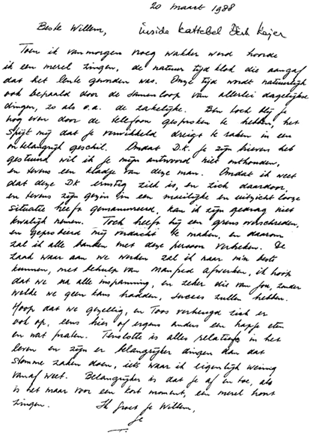 20 maart 1988
Beste Willem, inside Kattebel Derk Keijer
Toen ik vanmorgen vroeg wakker werd hoorde
ik een merel zingen, de natuur tijd klok die aangaf
dat het lente geworden was. Onze tijd wordt natuurlijk
ook bepaald door de samenloop van allerlei dagelijkse
dingen, zo als o.a. de zakelijke.
nog even door de telefoon gesproken te hebben, het
spijt mij dat je verwikkeld dreigt te raken in een
onbelangrijk geschil. Omdat D.K. je zijn brieven heeft
gestuurd wil ik je mijn antwoord niet onthouden,
en tevens een kladje van deze man. Omdat ik weet
dat deze DK ernstig ziek is, en zich daardoor,
en tevens zijn gezin in een moeilijke en uitzicht loze
situatie heeft gemanouvreerd, kan ik zijn gedrag niet
kwalijk nemen. Toch heeft hij een grens overschreden
en geprobeerd mij ondracht te maken, en daarom
zal ik alle banden met deze persoon verbreken. De
zaak waar aan we werken zal ik naar mijn beste
kunnen, met behulp van Manfred afwerken, ik hoop
dat we na alle inspanning, en zeker die van jou, zonder
welke we geen kans hadden, succes zullen hebben.
Hoop dat we gezellig, en Toos verheugd zich er
ook op, eens hier of ergens anders een hapje eten
en wat praten. Tenslotte is alles relatief in het
leven en zijn er belangrijker dingen dan dat
stomme zaken doen, iets waar ik eigenlijk weinig
vanaf weet. Belangrijker is dat je af en toe, als
is het maar voor een kort moment, een merel hoort
zingen. Ik groet je Willem,